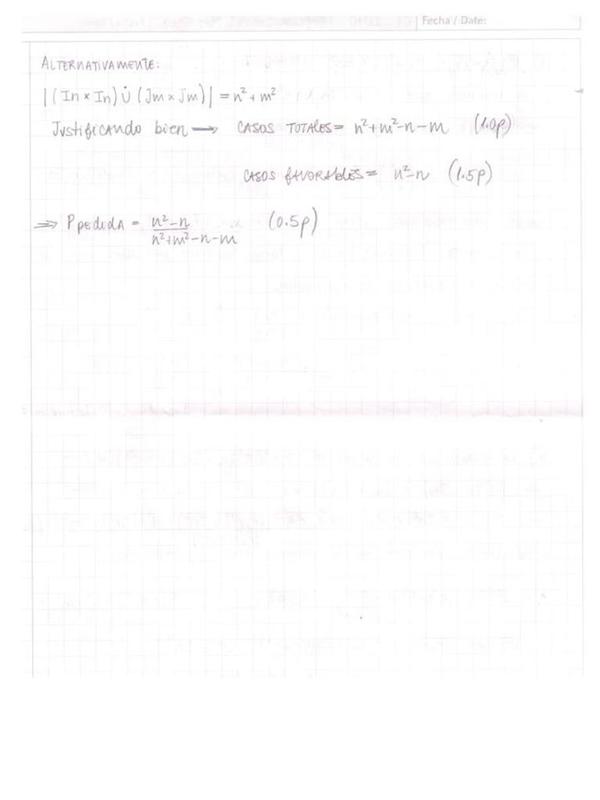 Fecha / Date:
ALTERNATIVAMENTE:
|(In × In) ∪̇ (Jm × Jm)| = n² + m²
JUSTIFICANDO bien → CASOS TOTALES = n² + m² - n - m (1.0p)
CASOS FAVORABLES = n² - n (1.5p)
⇒ P pedida = \frac{n² - n}{n² + m² - n - m} (0.5p)